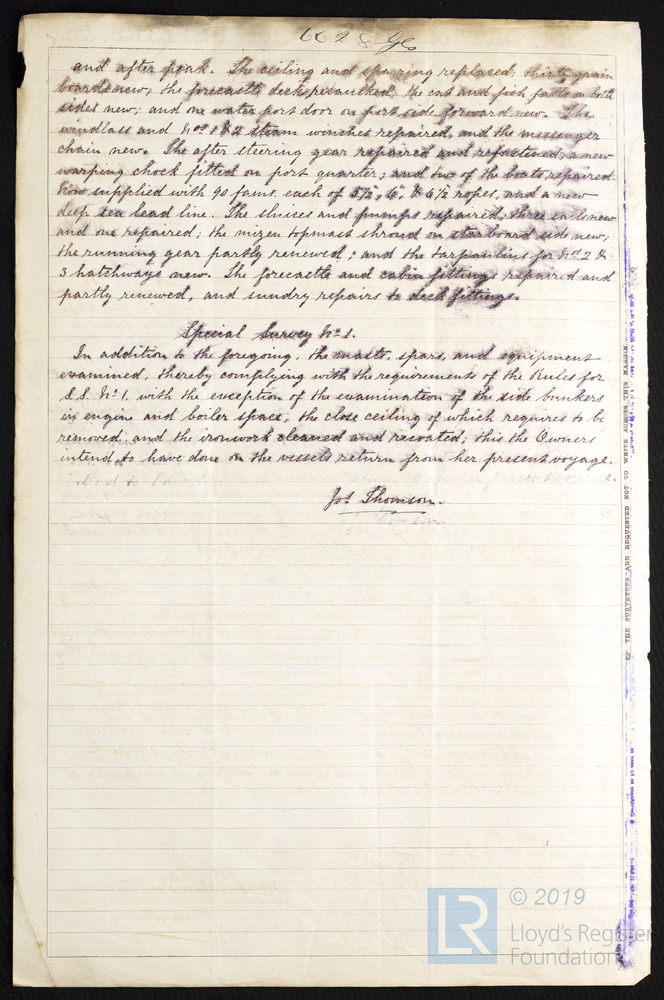 6628 Gls
and after peak. The ceiling and sparring replaced; thirty grain
boards new; the forecastle deck recaulked; the cat and fish falls on both
sides new; and one water port door on port side forward new. The
windlass and Nos 1 & 2 steam winches repaired, and the messenger
chain new. The after steering gear repaired and refastened; a new
warping chock fitted on port quarter; and two of the boats repaired.
Now supplied with 90 fams. each of 5½", 6", & 6½ ropes, and a new
deep sea lead line. The sluices and pumps repaired; three sails new
and one repaired; the mizen topmast shroud on starboard side new;
the running gear partly renewed; and the tarpaulins for Nos 2 &
3 hatchways new. The forecastle and cabin fittings repaired and
partly renewed, and sundry repairs to deck fittings.
Special Survey No 1.
In addition to the foregoing, the masts, spars, and equipment
examined, thereby complying with the requirements of the Rules for
S.S. No 1, with the exception of the examination of the side bunkers
in engine and boiler space, the close ceiling of which requires to be
removed and the ironwork cleaned and recoated; this the Owners
intend to have done on the vessels return from her present voyage.
Jos. Thomson.
THE SURVEYORS ARE REQUESTED NOT TO WRITE ACROSS THIS MARGIN.
LR
© 2019
Lloyd's Register
Foundation